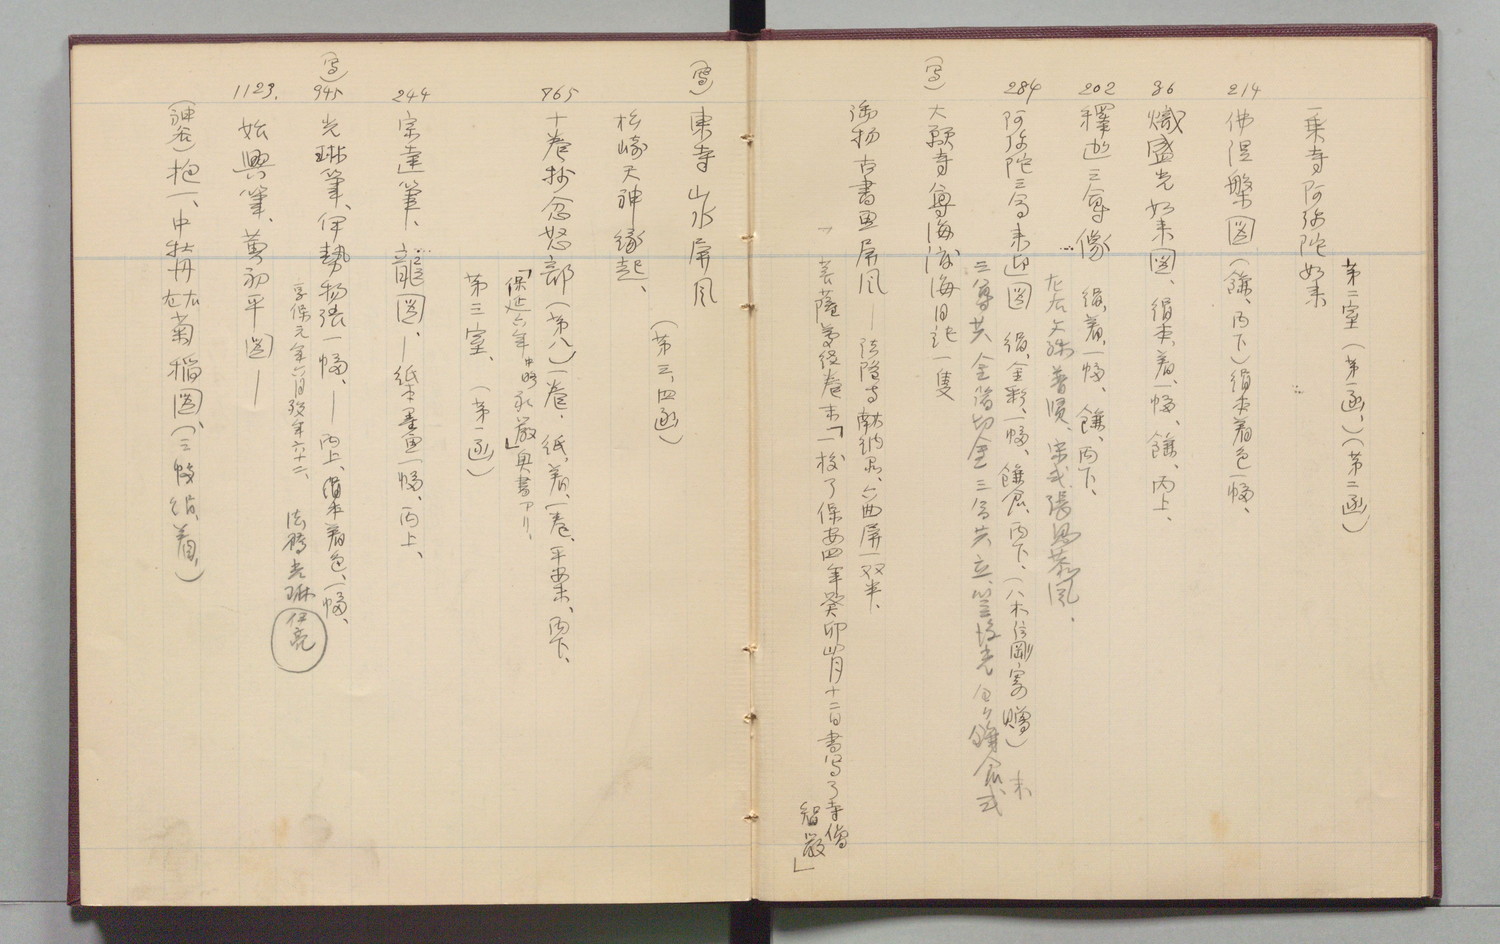 第二室(第一函、)(第二函)
一乗寺阿弥陀如来
214
佛涅槃図(鎌、丙下)絹本着色一幅、
36
熾盛光如来図、絹本、着、一幅、鎌、丙上、
202
釋迦三尊像 絹、着、一幅、鎌、丙下、
左右文殊普賢、宋式張思恭風、
284
阿弥陀三尊来迎図 絹、金彩、一幅、鎌倉、丙下、(八木信剛寄贈)末
三尊共金箔切金三尊共立、
(写)
大願寺尊海渡海日記一隻
御物古書画屏風—法隆寺献納品、六曲屏一双半、
菩薩 経巻末「一挍了保安四年癸卯 月十二日書写了寺僧
智厳」
(写)
東寺山水屏風
(第三、四函)
松崎天神縁起、
765
十巻抄忿怒部(第八)一巻、紙、着、一巻、平安末、丙下、
「保延六年 永厳」奥書アリ、
第三室、(第一函)
244
宗達筆、龍図、—紙本墨画一幅、丙上、
(写)
945
光琳筆、伊勢物語一幅、—丙上、絹本着色、一幅、
享保元年六月 法橋光琳 伊亮
1123.
始興筆、黄初平図—
(神谷)抱一、中牡丹左右菊稲図、(三幅絹、着、)